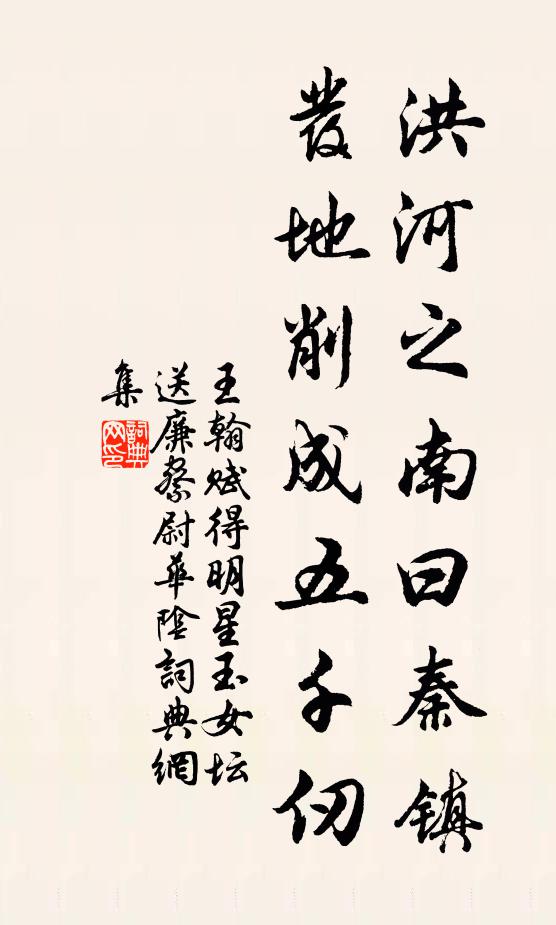 洪河之南曰秦镇
发地削成五千仞
王翰赋得明星玉女坛
送廉察尉華陰詞典網
集
詞典
网印